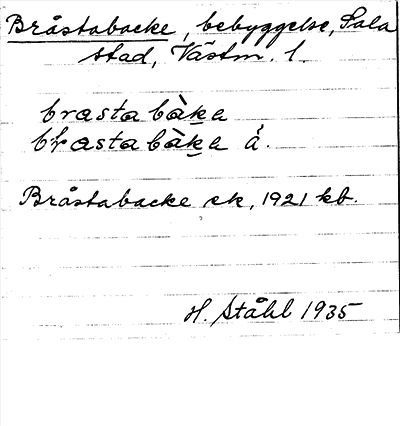 Bråstabacke, bebyggelse, Sala
stad, Västm. l.
brasta bàka
brasta bàka å.
Bråstabacke ek, 1921 kb.
H. Ståhl 1935